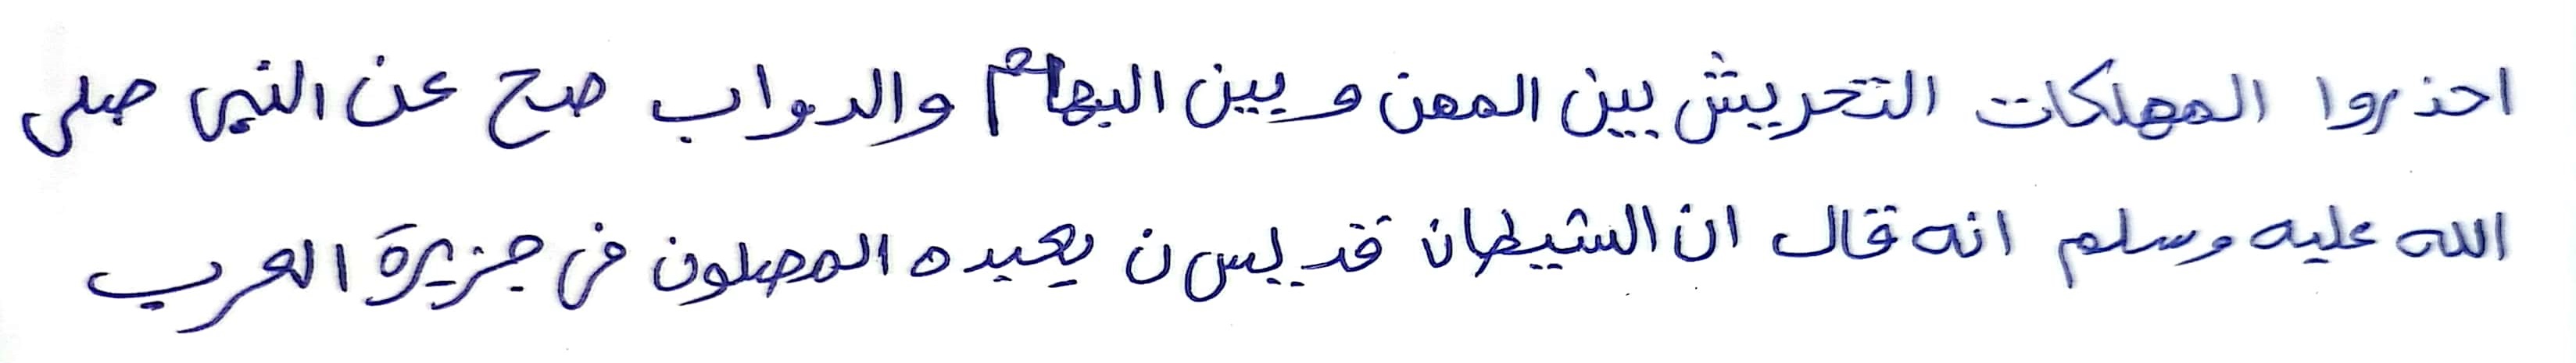 احذروا المهلكات التحريش بين الممن وبين البهائم والدواب صح عن النبي صلى
الله عليه وسلم انه قال ان الشيطان قد يس ن يعبده المصلون في جزيرة العرب